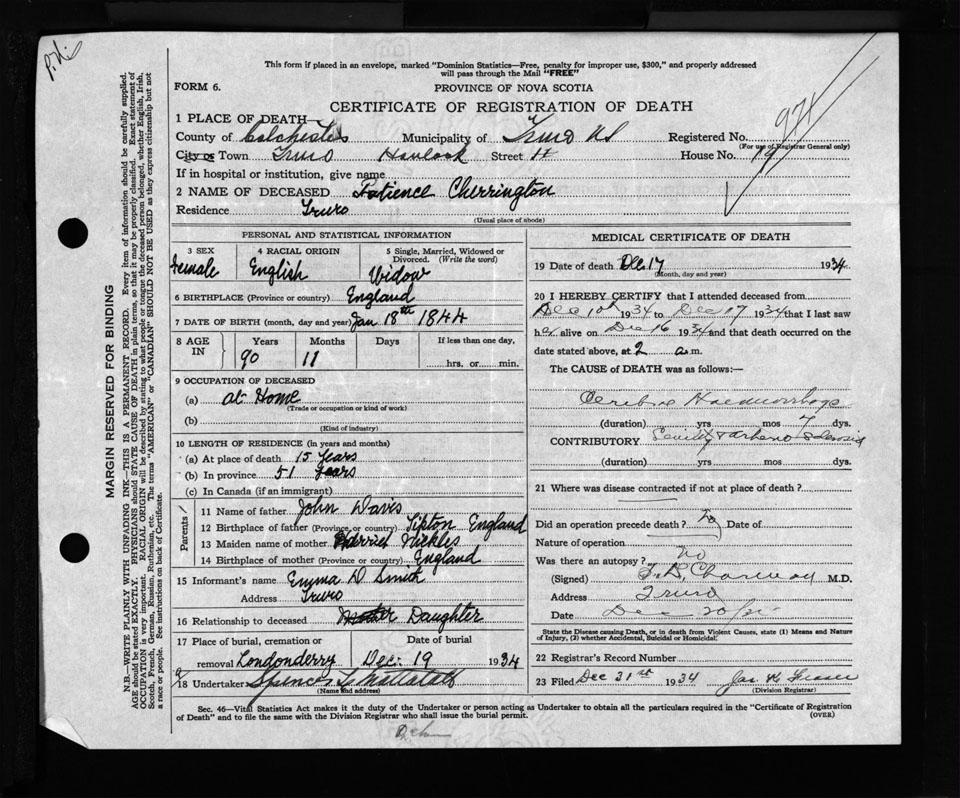 This form if placed in an envelope, marked "Dominion Statistics—Free, penalty for improper use, $300," and properly addressed
will pass through the Mail "FREE"
FORM 6.
PROVINCE OF NOVA SCOTIA
CERTIFICATE OF REGISTRATION OF DEATH
974
1 PLACE OF DEATH—
County of Colchester Municipality of Truro NS Registered No.
(For use of Registrar General only)
City or Town Truro Havlock Street St House No. 19
If in hospital or institution, give name
2 NAME OF DECEASED Patience Cherrington
Residence Truro
(Usual place of abode)
MARGIN RESERVED FOR BINDING
N.B.—WRITE PLAINLY WITH UNFADING INK—THIS IS A PERMANENT RECORD. Every item of information should be carefully supplied.
AGE should be stated EXACTLY. PHYSICIANS should STATE CAUSE OF DEATH in plain terms, so that it may be properly classified. Exact statement of
OCCUPATION is very important. RACIAL ORIGIN will be described by stating to what people or tongue the deceased person belonged, whether English, Irish,
Scotch, French, German, Russian, Ruthenian, etc. The terms "AMERICAN" or "CANADIAN" SHOULD NOT BE USED as they express citizenship but not
a race or people. See instructions on back of Certificate.
PERSONAL AND STATISTICAL INFORMATION
3 SEX
Female
4 RACIAL ORIGIN
English
5 Single, Married, Widowed or
Divorced. (Write the word)
Widow
6 BIRTHPLACE (Province or country) England
7 DATE OF BIRTH (month, day and year) Jan 18th 1844
8 AGE IN Years Months Days If less than one day,
90 11 hrs. or min.
9 OCCUPATION OF DECEASED
(a) at Home
(Trade or occupation or kind of work)
(b)
(Kind of industry)
10 LENGTH OF RESIDENCE (in years and months)
(a) At place of death 15 Years
(b) In province 51 Years
(c) In Canada (if an immigrant)
Parents
11 Name of father John Davis
12 Birthplace of father (Province or country) Tipton England
13 Maiden name of mother Herriet Nickles
14 Birthplace of mother (Province or country) England
15 Informant's name Emma D Smith
Address Truro
16 Relationship to deceased Daughter
17 Place of burial, cremation or Date of burial
removal Londonderry Dec. 19 1934
18 Undertaker Spencer
(Name and address)
MEDICAL CERTIFICATE OF DEATH
19 Date of death Dec 17 1934
(Month, day and year)
20 I HEREBY CERTIFY that I attended deceased from
Dec 10th 1934 to Dec 17 1934 that I last saw
her alive on Dec 16 1934 and that death occurred on
date stated above, at 2 a.m.
The CAUSE of DEATH was as follows:—
Haemorrhage
(duration) yrs mos 7 dys.
CONTRIBUTORY Senility & Arterio Sclerosis
(duration) yrs mos dys.
21 Where was disease contracted if not at place of death?
Did an operation precede death? No Date of
Nature of operation
Was there an autopsy? no
(Signed) M.D.
Address Truro
Date Dec 20
State the Disease causing Death, or in death from Violent Causes, state (1) Means and Nature
of Injury, (2) whether Accidental, Suicidal or Homicidal.
22 Registrar's Record Number
23 Filed Dec 21st 1934 Jas. K. Fraser
(Division Registrar)
Sec. 46—Vital Statistics Act makes it the duty of the Undertaker or person acting as Undertaker to obtain all the particulars required in the "Certificate of Registration
of Death" and to file the same with the Division Registrar who shall issue the burial permit.
(OVER)